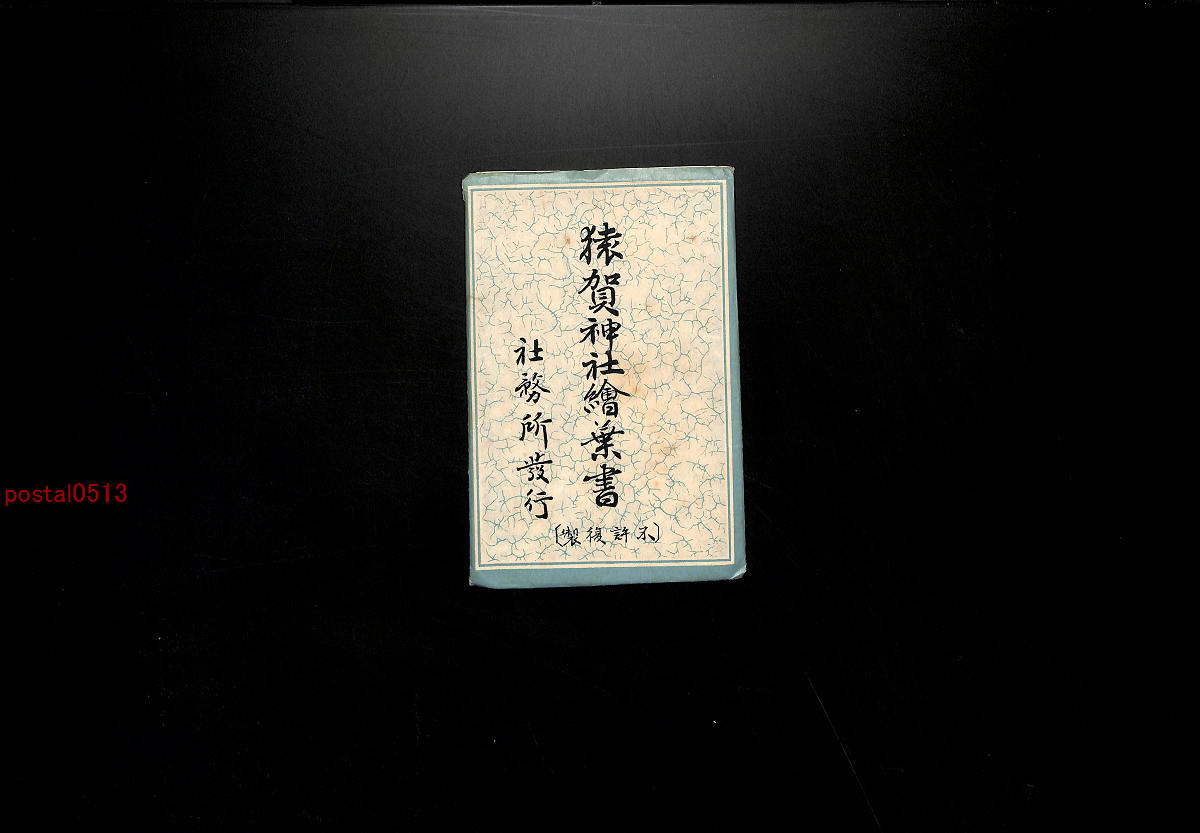 猿賀神社繪葉書
社務所發行
〔不許復製〕
postal0513